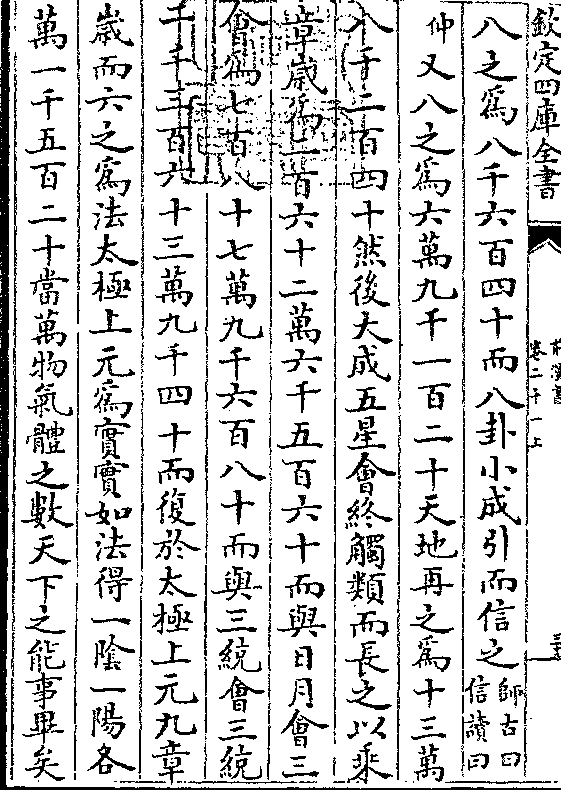 欽定四庫全書
前漢書
卷二十一上
八之爲八千六百四十而八卦小成引而信之師古曰信讀曰
伸又八之爲六萬九千一百二十天地再之爲十三萬
八千二百四十然後大成五星會終觸類而長之以乘
章歲爲二百六十二萬六千五百六十而與日月會三
會爲七百八十七萬九千六百八十而與三統會三統
二千三百六十三萬九千四十而復於太極上元九章
歲而六之爲法太極上元爲實實如法得一隂一陽各
萬一千五百二十當萬物氣體之數天下之能事畢矣